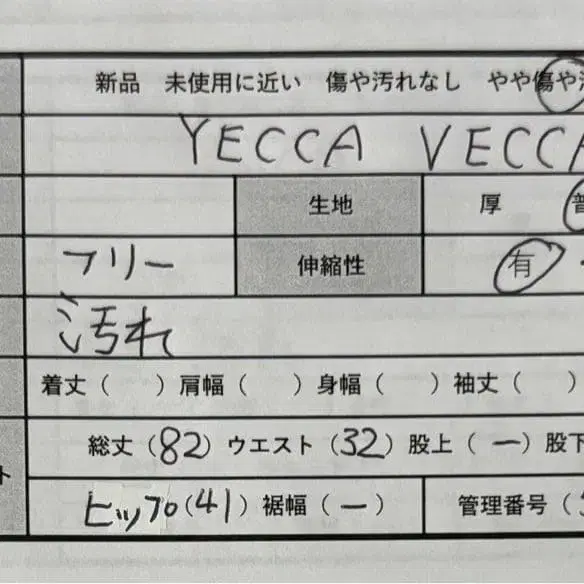 新品 未使用に近い 傷や汚れなし やや傷や
YECCA VECCA
生地 厚 普
フリー 伸縮性 有
汚れ
着丈( )肩幅( )身幅( )袖丈( )
総丈(82)ウエスト(32)股上(ー)股下
ト
ヒップ(41)裾幅(ー) 管理番号(